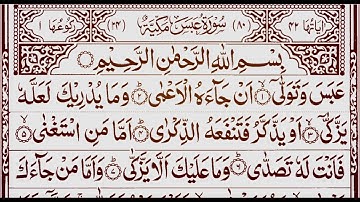 اٰیاتہا ۴۲ (۸۰) سُوْرَةُ عَبَسَ مَكِّيَّةٌ (۲۴) رکوعہا ۱
بِسْمِ اللهِ الرَّحْمٰنِ الرَّحِيْمِ
عَبَسَ وَتَوَلّٰٓى ۙ﴿۱﴾ اَنْ جَآءَهُ الْاَعْمٰى ؕ﴿۲﴾ وَمَا يُدْرِيْكَ لَعَلَّهٗ
يَزَّكّٰٓى ۙ﴿۳﴾ اَوْ يَذَّكَّرُ فَتَنْفَعَهُ الذِّكْرٰى ؕ﴿۴﴾ اَمَّا مَنِ اسْتَغْنٰى ۙ﴿۵﴾
فَاَنْتَ لَهٗ تَصَدّٰى ؕ﴿۶﴾ وَمَا عَلَيْكَ اَلَّا يَزَّكّٰى ؕ﴿۷﴾ وَاَمَّا مَنْ جَآءَكَ